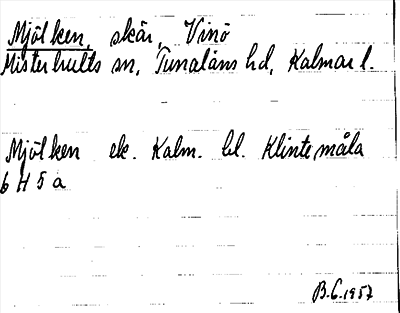 Mjölken, skär, Vinö
Misterhults sn, Tunaläns hd, Kalmar l.
Mjölken ek. Kalm. bl. Klintemåla
6 H 5 a
B.G. 1957